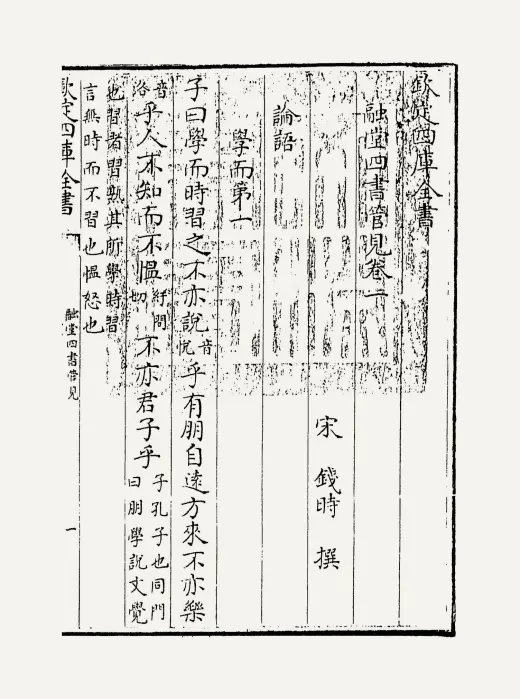 欽定四庫全書
融堂四書管見卷一
宋 錢時 撰
論語
學而第一
子曰學而時習之不亦說音悅乎有朋自遠方來不亦樂
音洛乎人不知而不慍紆問切不亦君子乎子孔子也同門曰朋學說文覺
也習者習熟其所學時習
言無時而不習也慍怒也
欽定四庫全書
融堂四書管見
一